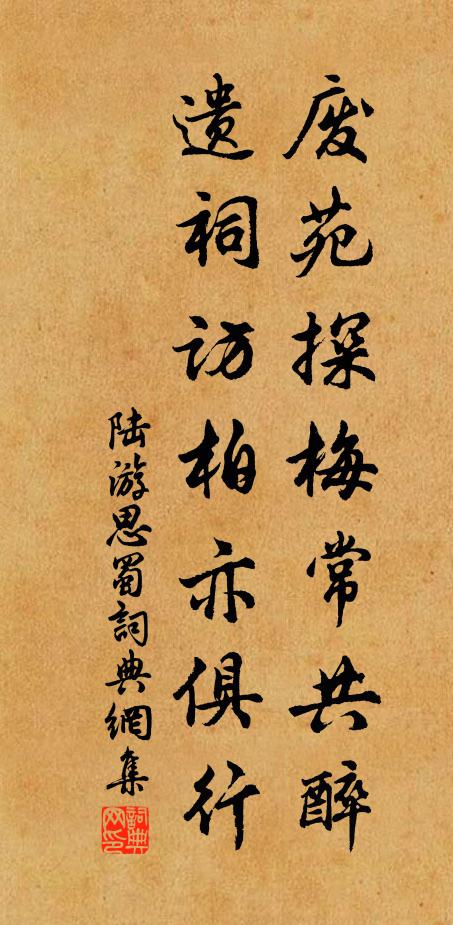 废苑探梅常共醉
遗祠访柏亦俱行
陆游思蜀詞典網集
詞典网印